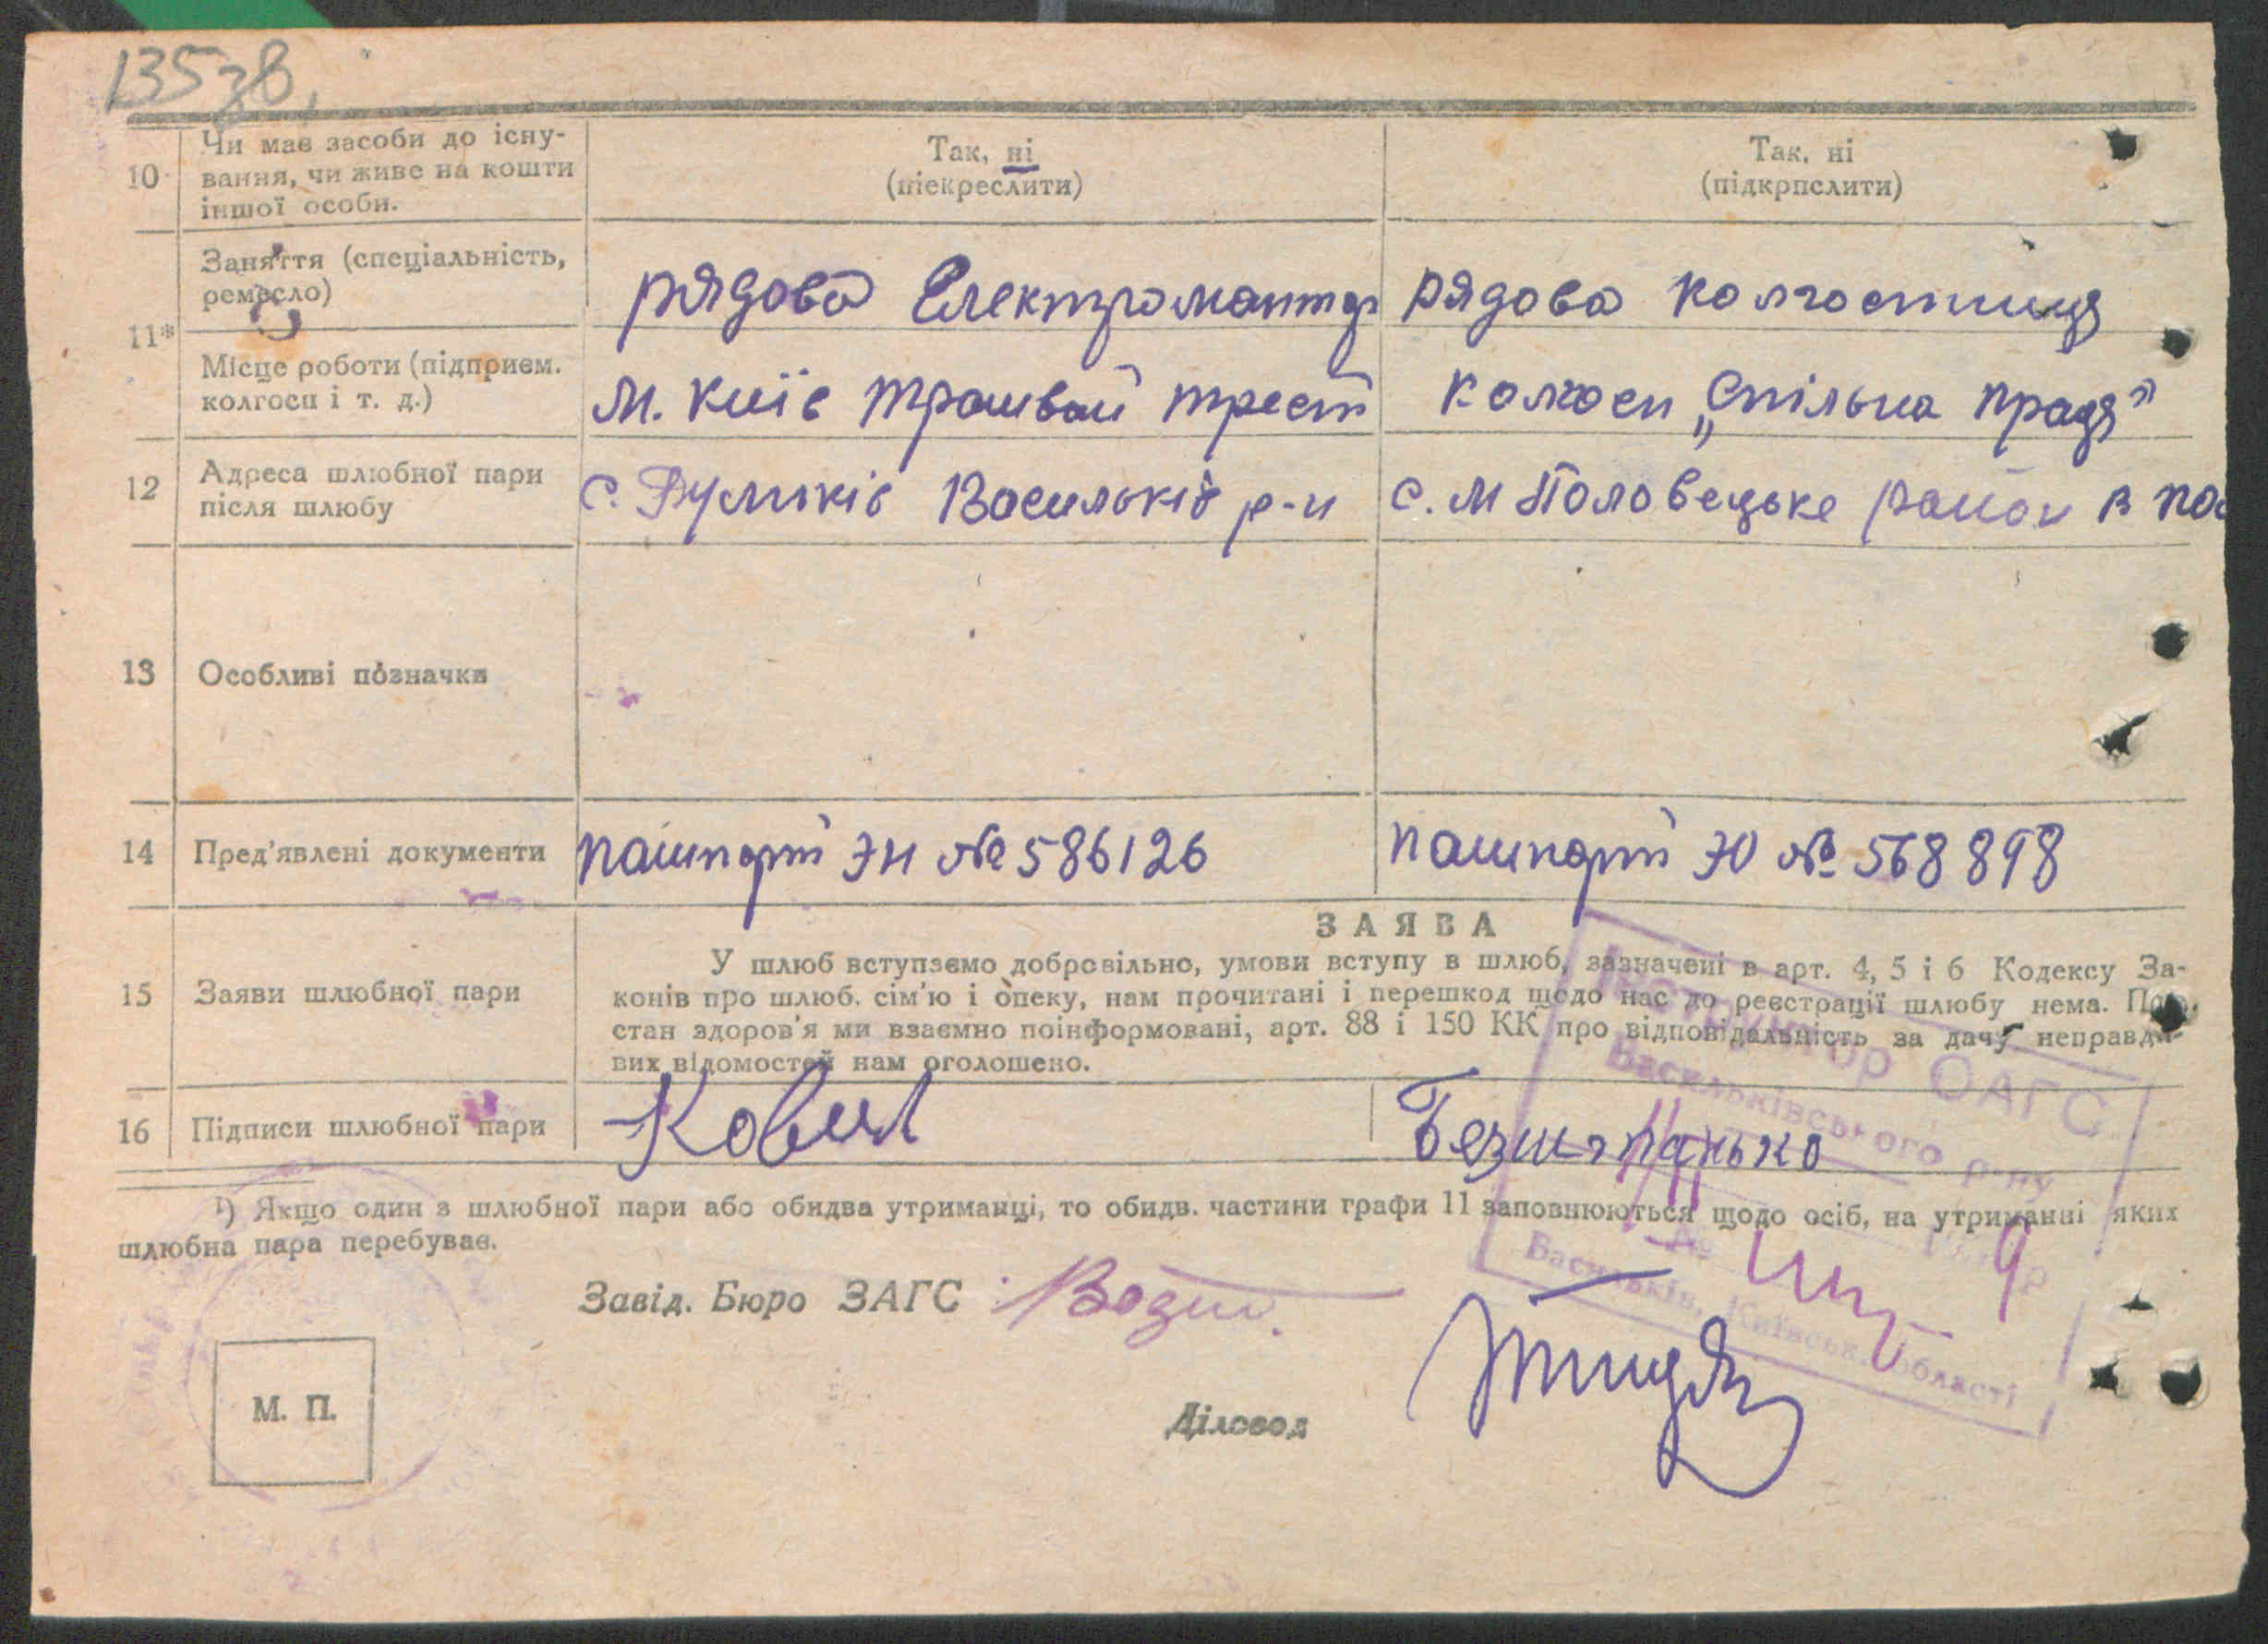 13538.
10 Чи має засоби до існу-
вання, чи живе на кошти
іншої особи.
Так, ні
(піекреслити)
Так, ні
(підкрпслити)
11*
Заняття (спеціальність,
ремесло)
рядово Електромонтер
рядова колгоспниця
Місце роботи (підприєм.
колгосп і т. д.)
м. Київ трамвай трест
колгосп „Спільна праця"
12 Адреса шлюбної пари
після шлюбу
с. Васильків р-н
с. М Половецьке район
13 Особливі позначки
14 Пред'явлені документи
пашпорт ЭН № 586126
пашпорт ЭЮ № 568898
ЗАЯВА
15 Заяви шлюбної пари
У шлюб вступаємо добровільно, умови вступу в шлюб, зазначені в арт. 4, 5 і 6 Кодексу За-
конів про шлюб. сім'ю і опеку, нам прочитані і перешкод щодо нас до реєстрації шлюбу нема. Про
стан здоров'я ми взаємно поінформовані, арт. 88 і 150 КК про відповідальність за дачу неправди-
вих відомостей нам оголошено.
16 Підписи шлюбної пари
Ковал
¹) Якщо один з шлюбної пари або обидва утриманці, то обидв. частини графи 11 заповнюються щодо осіб, на утриманні яких
шлюбна пара перебуває.
Завід. Бюро ЗАГС
Діловод
М. П.
ОАГС
Васильківського р-ну
Васильків, Київськ. області